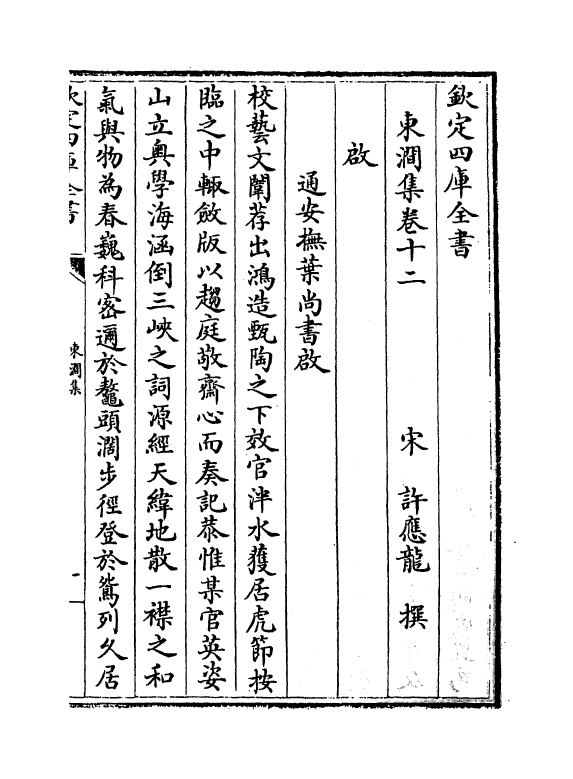 欽定四庫全書
東澗集卷十二
宋　許應龍　撰
啟
通安撫葉尚書啟
校藝文闈荐出鴻造甄陶之下效官泮水獲居虎節按
臨之中輙斂版以趨庭敬齋心而奏記恭惟某官英姿
山立奥學海涵倒三峽之詞源經天緯地散一襟之和
氣與物為春巍科密邇於鼇頭濶步徑登於鵷列久居
欽定四庫全書
東澗集
一